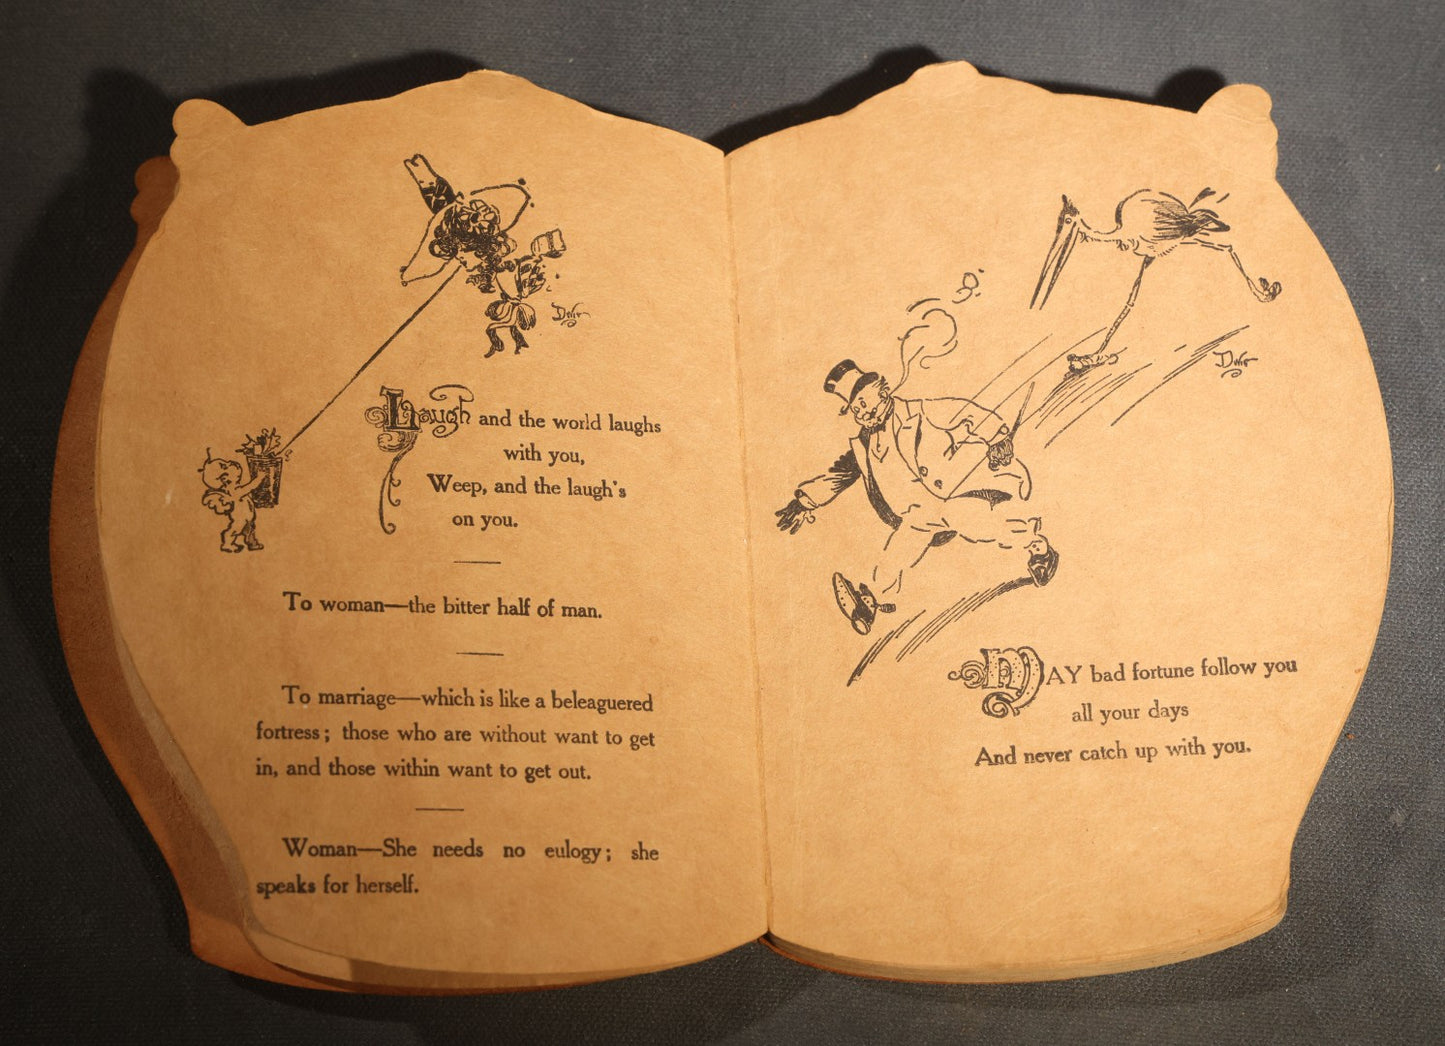 Laugh and the world laughs
with you,
Weep, and the laugh's
on you.
To woman—the bitter half of man.
To marriage—which is like a beleaguered
fortress; those who are without want to get
in, and those within want to get out.
Woman—She needs no eulogy; she
speaks for herself.
MAY bad fortune follow you
all your days
And never catch up with you.